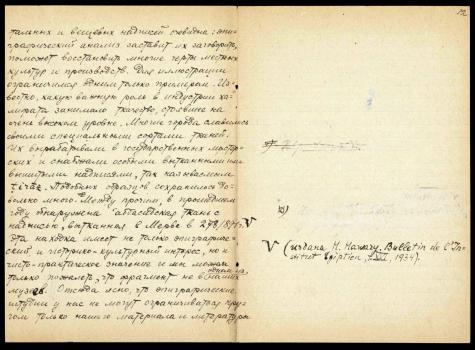 тальных и вещевых надписей очевидна: эпи-
графический анализ заставит их заговорить,
поможет восстановить многие черты местных
культур и производств. Для иллюстрации
ограничимся одним только примером. Из-
вестно, какую важную роль в индустрии ха-
лифата занимало ткачество, стоявшее на
очень высоком уровне. Многие города славились
своими специальными сортами тканей.
Их вырабатывали в государственных мастер-
ских и снабжали особыми вытканными или
вышитыми надписями, так называемым
tirāz. Подобных образцов сохранилось до-
вольно много. Между прочим, в прошедшем
году обнаружена аббасидская ткань с
надписью, вытканная в Мерве в 278/891 г. V
Эта находка имеет не только эпиграфиче-
ский и историко-культурный интерес, но и
чисто-практическое значение и мы можем
только пожалеть, что фрагмент не в нашем
музее. Отсюда ясно, что эпиграфические
штудии у нас не могут ограничиваться кру-
гом только нашего материала и литературы
V (издана H. Hawary, Bulletin de l'In-
stitut Egyptien, XVI, 1934).